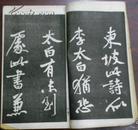 東坡此詩似
李太白猶恐
太白有未到
處此書兼